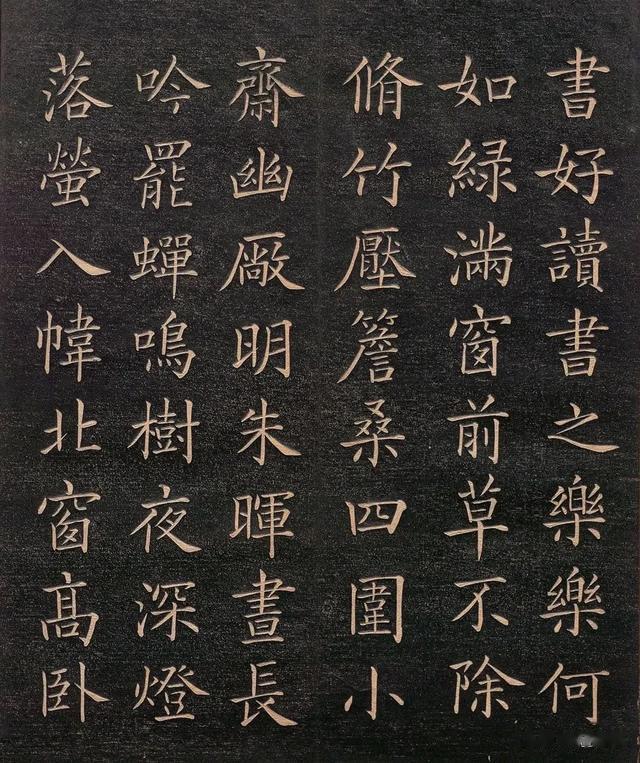 書好讀書之樂樂何
如綠滿窗前草不除
脩竹壓簷桑四圍小
齋幽廠明朱暉晝長
吟罷蟬鳴樹夜深燈
落螢入幃北窗高卧